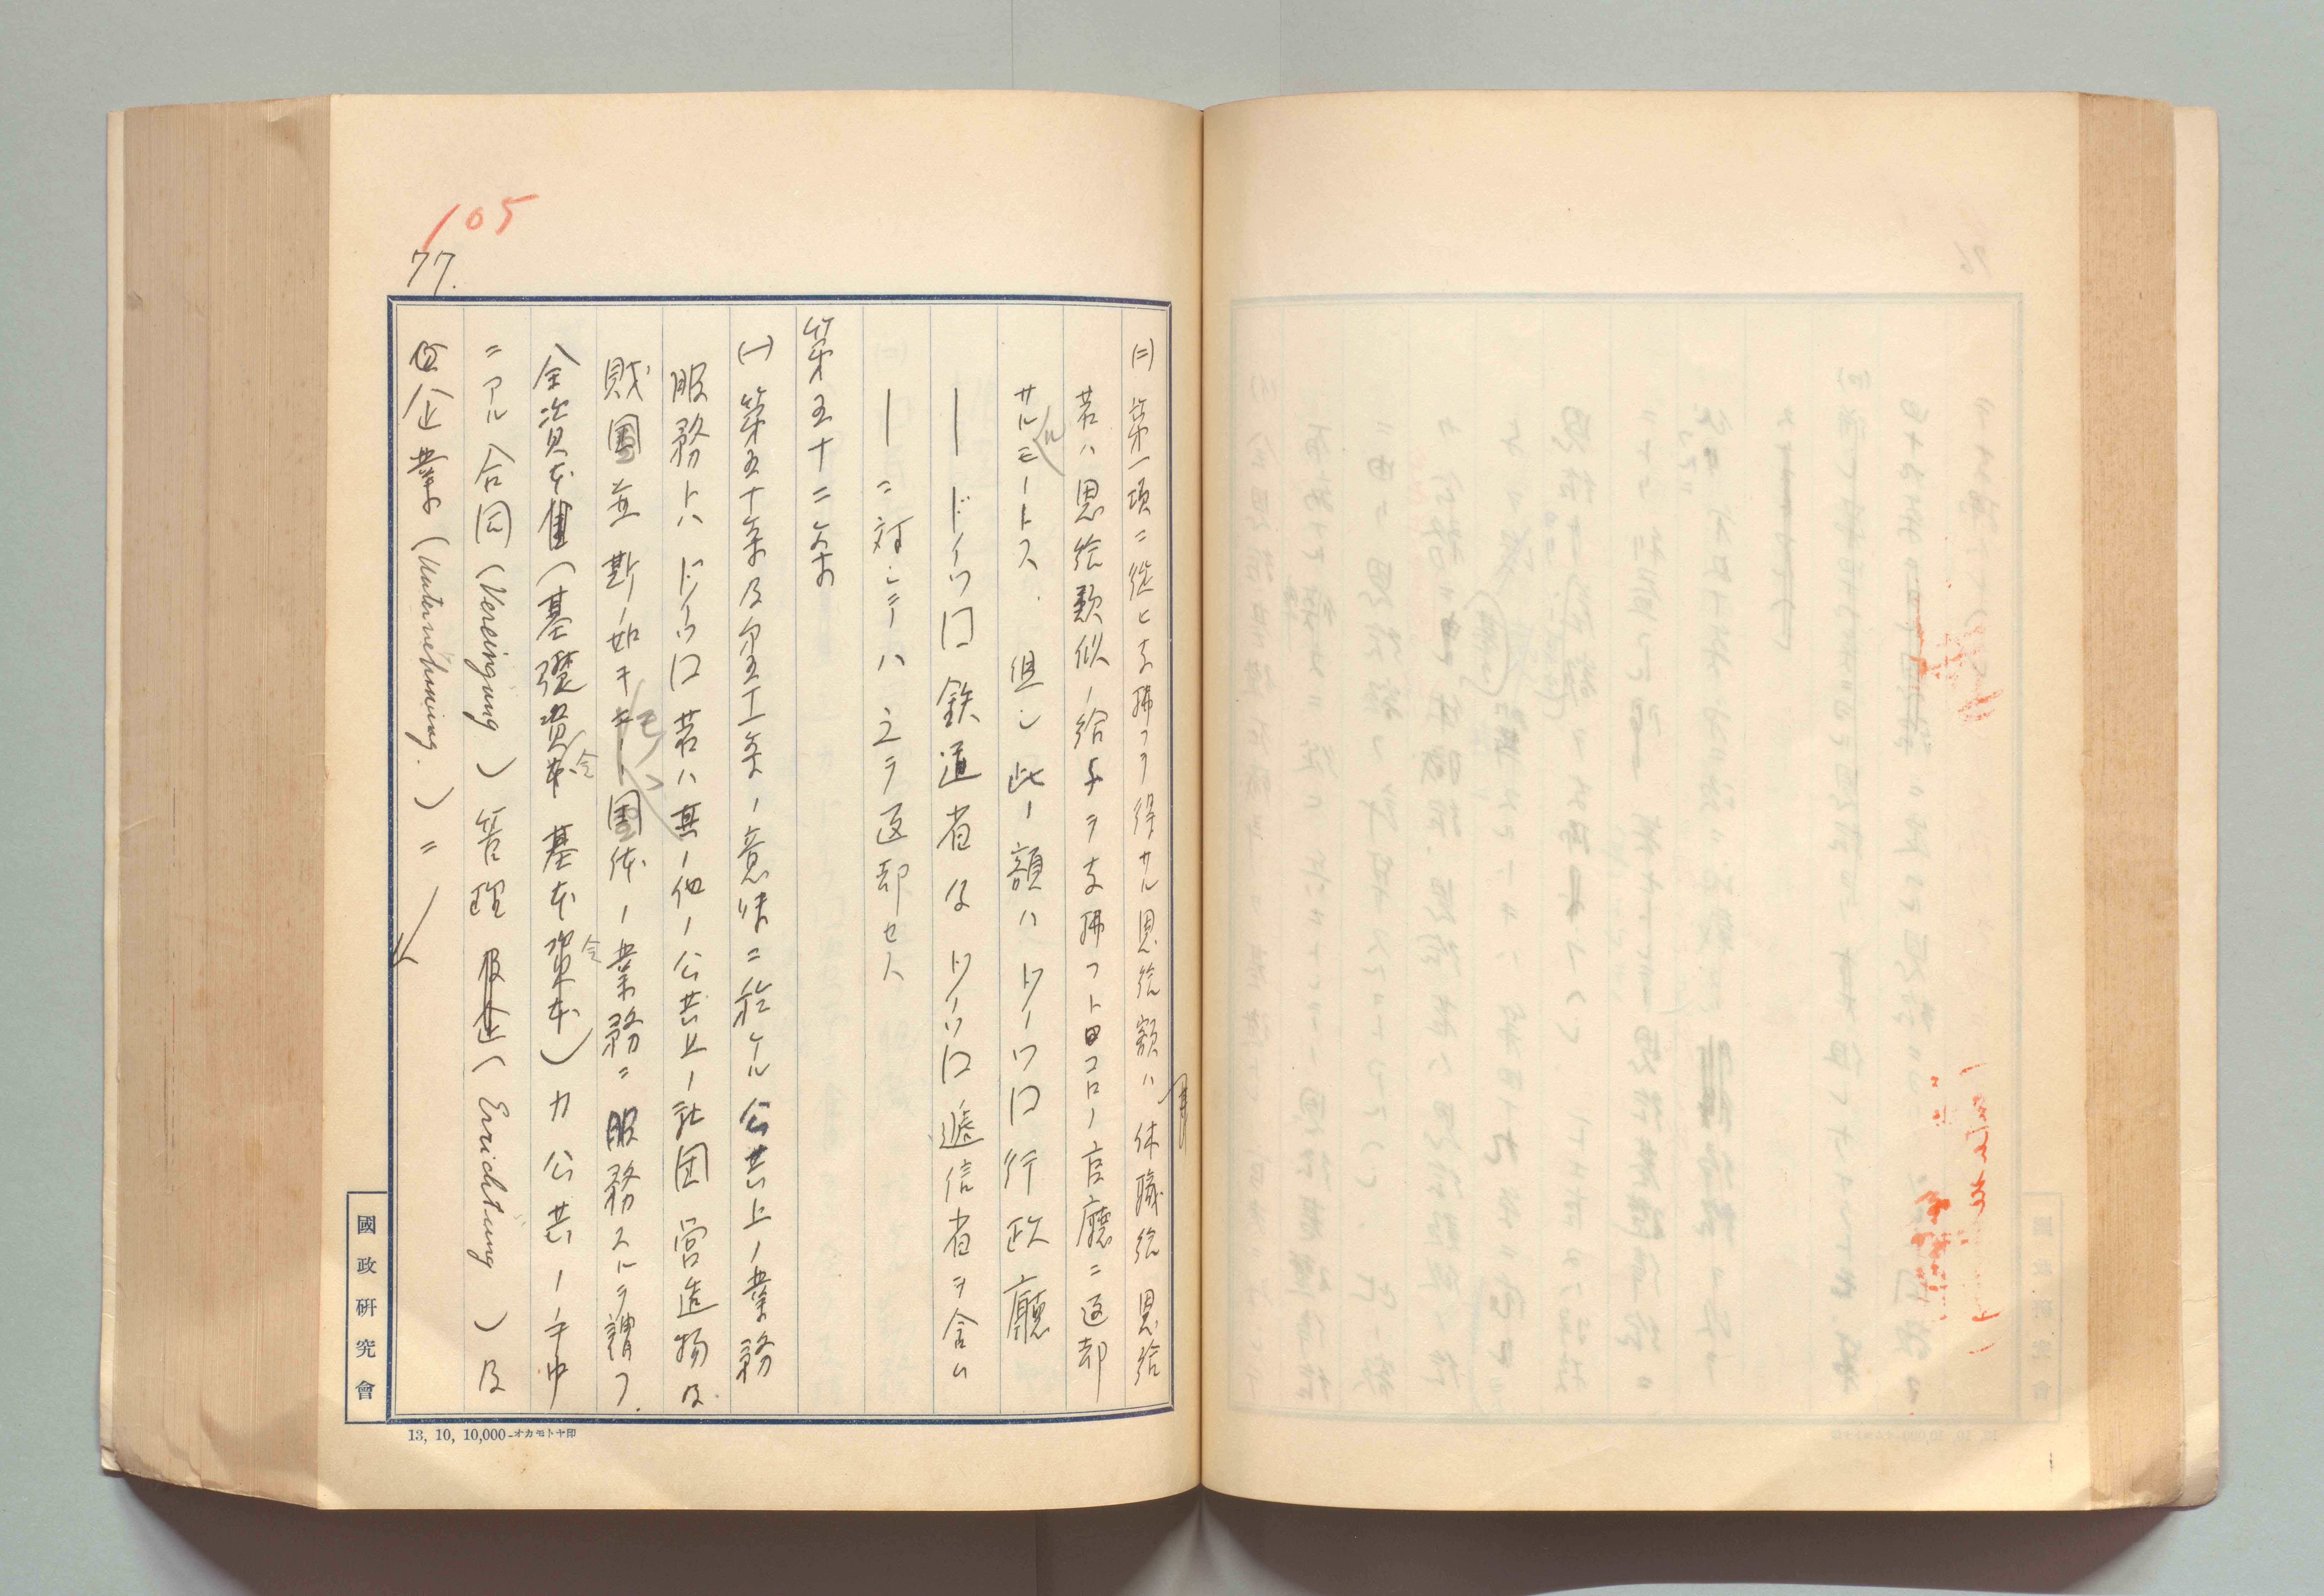 105
77.
(二)第一項ニ従ヒ支拂フヲ得サル恩給額ハ休職給 恩給
若ハ恩給類似ノ給与ヲ支拂フトコロノ官廳ニ返却
サルルモノトス. 但シ此ノ額ハドイツ囗行政廳
— ドイツ囗鉄道省及ドイツ囗逓信省ヲ含ム
— ニ対シテハ之ヲ返却セス
第五十二条
(一)第五十条及第五十一条ノ意味ニ於ケル公共上ノ業務
服務トハドイツ囗若ハ其ノ他ノ公共上ノ社団 営造物及
財團並斯ノ如キモノノ團体ノ業務ニ服務スルヲ謂フ.
全資本(基礎資金 基本資金)カ公共ノ手中
ニアル合同(Vereingung)管理(Errichtung)及
企業(Unternehmung.)=
國政研究會
13, 10, 10,000-オカモトヤ印